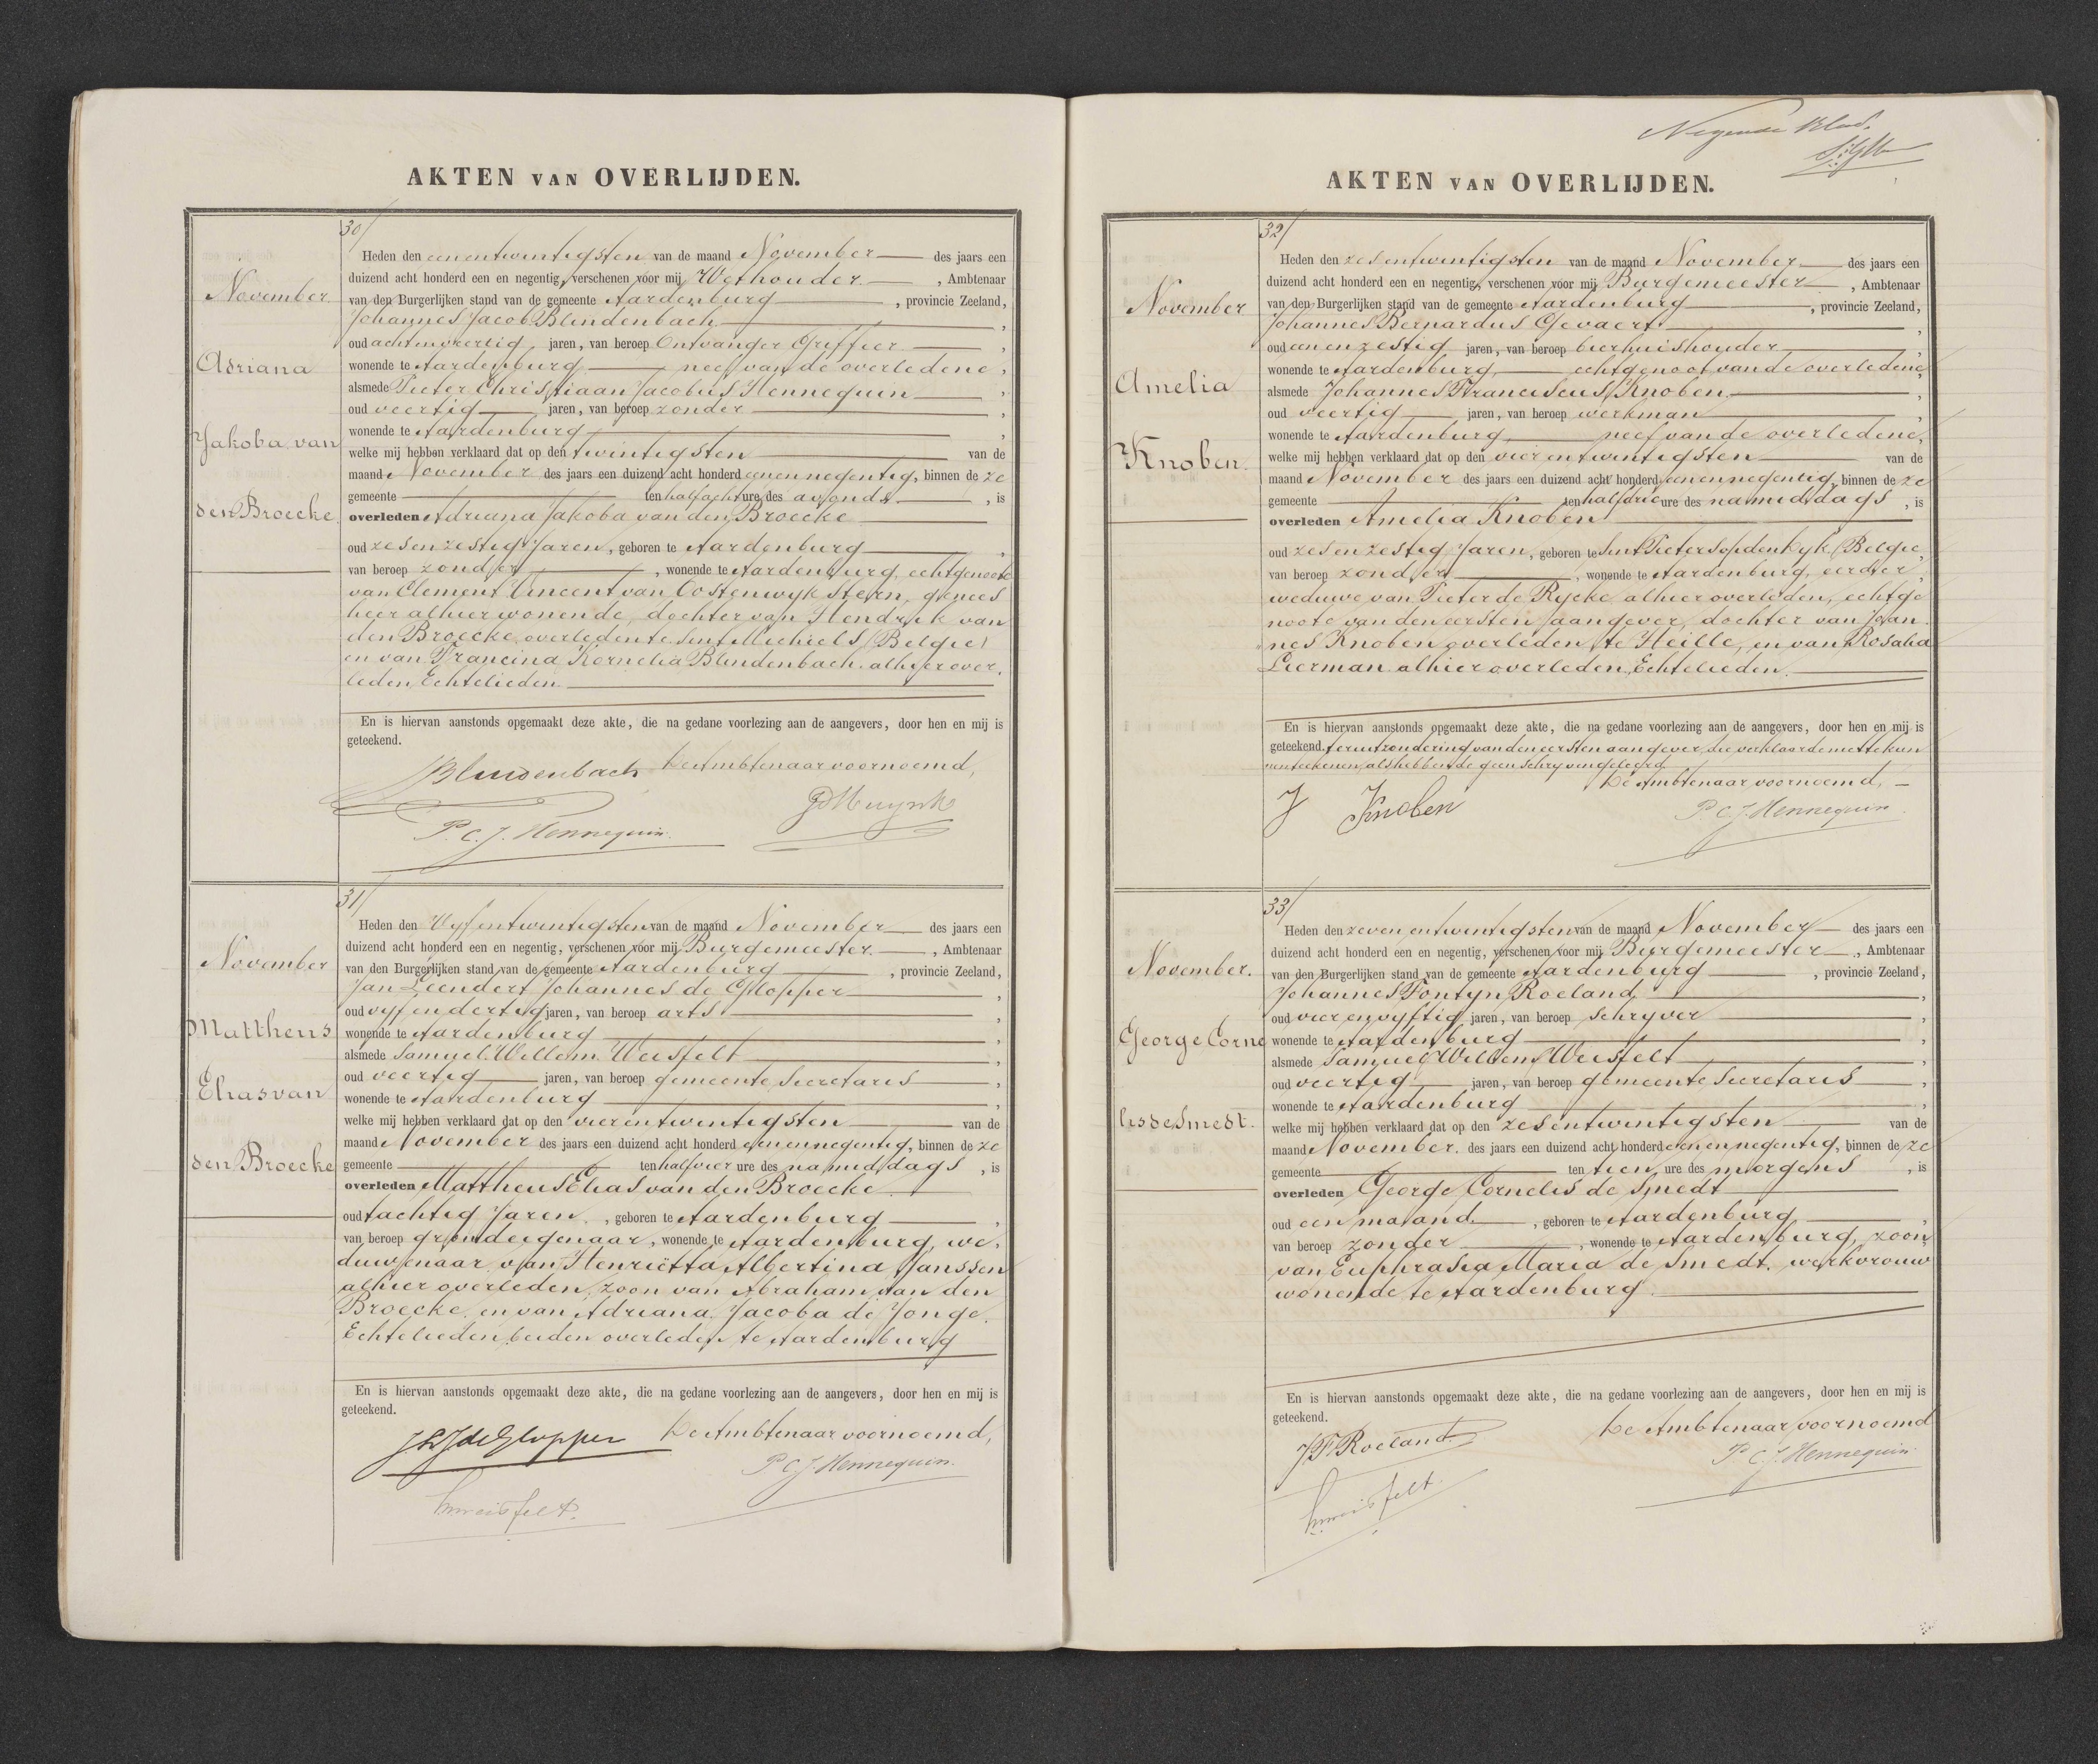 AKTEN VAN OVERLIJDEN.
30/
November
Adriana
Jakoba van
den Broecke
Heden den eenentwintigsten van de maand November des jaars een
duizend acht honderd een en negentig, verschenen voor mij Wethouder , Ambtenaar
van den Burgerlijken stand van de gemeente Aardenburg , provincie Zeeland,
Johannes Jacob Blindenbach ,
oud achtenveertig jaren, van beroep Ontvanger Griffier ,
wonende te Aardenburg neef van de overledene,
alsmede Pieter Christiaan Jacobus Hennequin ,
oud veertig jaren, van beroep zonder ,
wonende te Aardenburg ,
welke mij hebben verklaard dat op den twintigsten van de
maand November des jaars een duizend acht honderd eenennegentig, binnen de ze
gemeente ten half acht ure des avonds , is
overleden Adriana Jakoba van den Broecke
oud zesenzestig Jaren, geboren te Aardenburg ,
van beroep zonder , wonende te Aardenburg, echtgenoote
van Clement Vincent van Oostenwyk Stern, genees
heer alhier wonende, dochter van Hendrik van
den Broecke, overleden te Sint Michiels (Belgie)
en van Francina Kornelia Blindenbach alhier over
leden, Echtelieden
En is hiervan aanstonds opgemaakt deze akte, die na gedane voorlezing aan de aangevers, door hen en mij is
geteekend.
De Ambtenaar voornoemd,
Blindenbach
P. C. J. Hennequin.
31/
November
Mattheus
Elias van
den Broecke
Heden den Vyfentwintigsten van de maand November des jaars een
duizend acht honderd een en negentig, verschenen voor mij Burgemeester. , Ambtenaar
van den Burgerlijken stand van de gemeente Aardenburg , provincie Zeeland,
Jan Leendert Johannes de Glopper ,
oud vyfendertig jaren, van beroep arts ,
wonende te Aardenburg ,
alsmede Samuel Willem Weisfelt ,
oud veertig jaren, van beroep gemeente Secretaris ,
wonende te Aardenburg ,
welke mij hebben verklaard dat op den vierentwintigsten van de
maand November des jaars een duizend acht honderd eenennegentig, binnen de ze
gemeente ten half vier ure des namiddags , is
overleden Mattheus Elias van den Broecke
oud tachtig Jaren, , geboren te Aardenburg ,
van beroep grondeigenaar, wonende te Aardenburg, we,
duwenaar van Henriëtta Albertina Janssen
alhier overleden, zoon van Abraham van den
Broecke en van Adriana Jacoba de Jonge.
Echtelieden beiden overleden te Aardenburg
En is hiervan aanstonds opgemaakt deze akte, die na gedane voorlezing aan de aangevers, door hen en mij is
geteekend.
De Ambtenaar voornoemd,
JLJdeGlopper
P. C. J. Hennequin.
Swweisfelt.
Negende blad.
AKTEN VAN OVERLIJDEN.
32/
November
Amelia
Knoben.
Heden den zesentwintigsten van de maand November des jaars een
duizend acht honderd een en negentig, verschenen voor mij Burgemeester , Ambtenaar
van den Burgerlijken stand van de gemeente Aardenburg , provincie Zeeland,
Johannes Bernardus Gevaert ,
oud eenenzestig jaren, van beroep bierhuishouder ,
wonende te Aardenburg, echtgenoot van de overledene,
alsmede Johannes Franciscus Knoben, ,
oud veertig jaren, van beroep werkman ,
wonende te Aardenburg neef van de overledene,
welke mij hebben verklaard dat op den vierentwintigsten van de
maand November des jaars een duizend acht honderd eenennegentig, binnen de ze
gemeente ten half drie ure des namiddags , is
overleden Amelia Knoben
oud zesenzestig Jaren, geboren te Sint Pietersopdendyk (Belgie,
van beroep zonder , wonende te Aardenburg, eerder
weduwe van Pieter de Rycke alhier overleden, echtge
noote van den eersten aangever, dochter van Johan
nes Knoben overleden te Heille, en van Rosalia
Lierman alhier overleden, Echtelieden.
En is hiervan aanstonds opgemaakt deze akte, die na gedane voorlezing aan de aangevers, door hen en mij is
geteekend, ter uitzondering van den eersten aangever, die verklaarde niet te kun
nen teekenen, als hebbende geen schryven geleerd
De Ambtenaar voornoemd,
J Knoben
P. C. J. Hennequin
33/
November.
George Corne
lis de Smedt.
Heden den zevenentwintigsten van de maand November des jaars een
duizend acht honderd een en negentig, verschenen voor mij Burgemeester , Ambtenaar
van den Burgerlijken stand van de gemeente Aardenburg , provincie Zeeland,
Johannes Fontyn Roeland ,
oud vierenvyftig jaren, van beroep schryver ,
wonende te Aardenburg ,
alsmede Samuel Willem Weisfelt ,
oud veertig jaren, van beroep gemeente Secretaris ,
wonende te Aardenburg ,
welke mij hebben verklaard dat op den zesentwintigsten van de
maand November. des jaars een duizend acht honderd eenennegentig, binnen de ze
gemeente ten tien ure des morgens , is
overleden George Cornelis de Smedt
oud een maand , geboren te Aardenburg ,
van beroep zonder , wonende te Aardenburg, zoon
van Euphrasia Maria de Smedt. werkvrouw
wonende te Aardenburg
En is hiervan aanstonds opgemaakt deze akte, die na gedane voorlezing aan de aangevers, door hen en mij is
geteekend.
De Ambtenaar voornoemd
JFRoeland.
P. C. J. Hennequin.
Swweisfelt